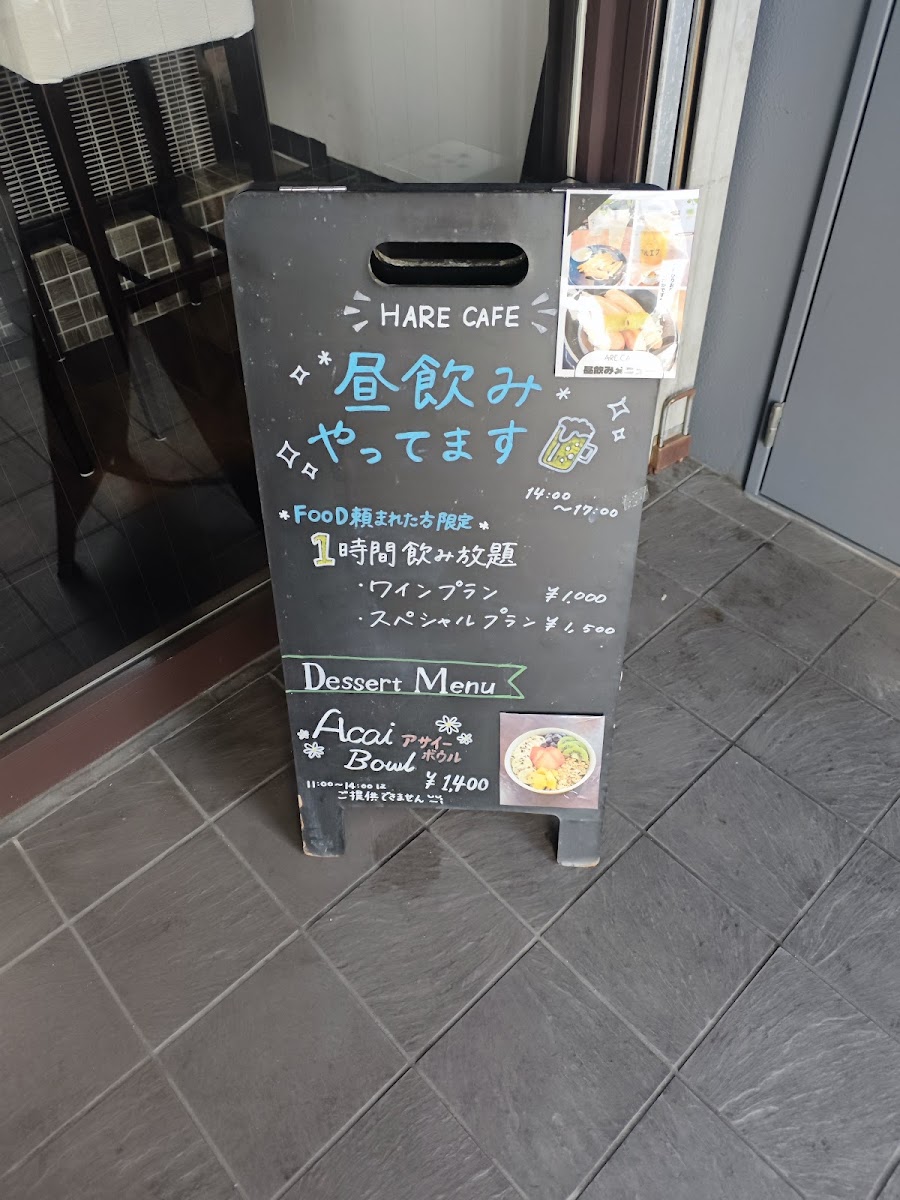 HARE CAFE
昼飲み
やってます
14:00
〜17:00
FOOD頼まれた方限定
1時間飲み放題
・ワインプラン ¥1,000
・スペシャルプラン ¥1,500
Dessert Menu
Acai アサイー
Bowl ボウル
¥1,400
11:00〜14:00は
ご提供できません
昼飲みメニュー